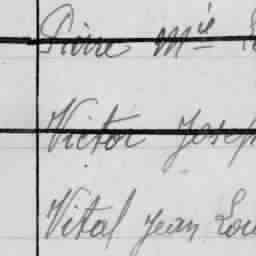 Pierre Mie
Victor Joseph
Vital Jean Lou